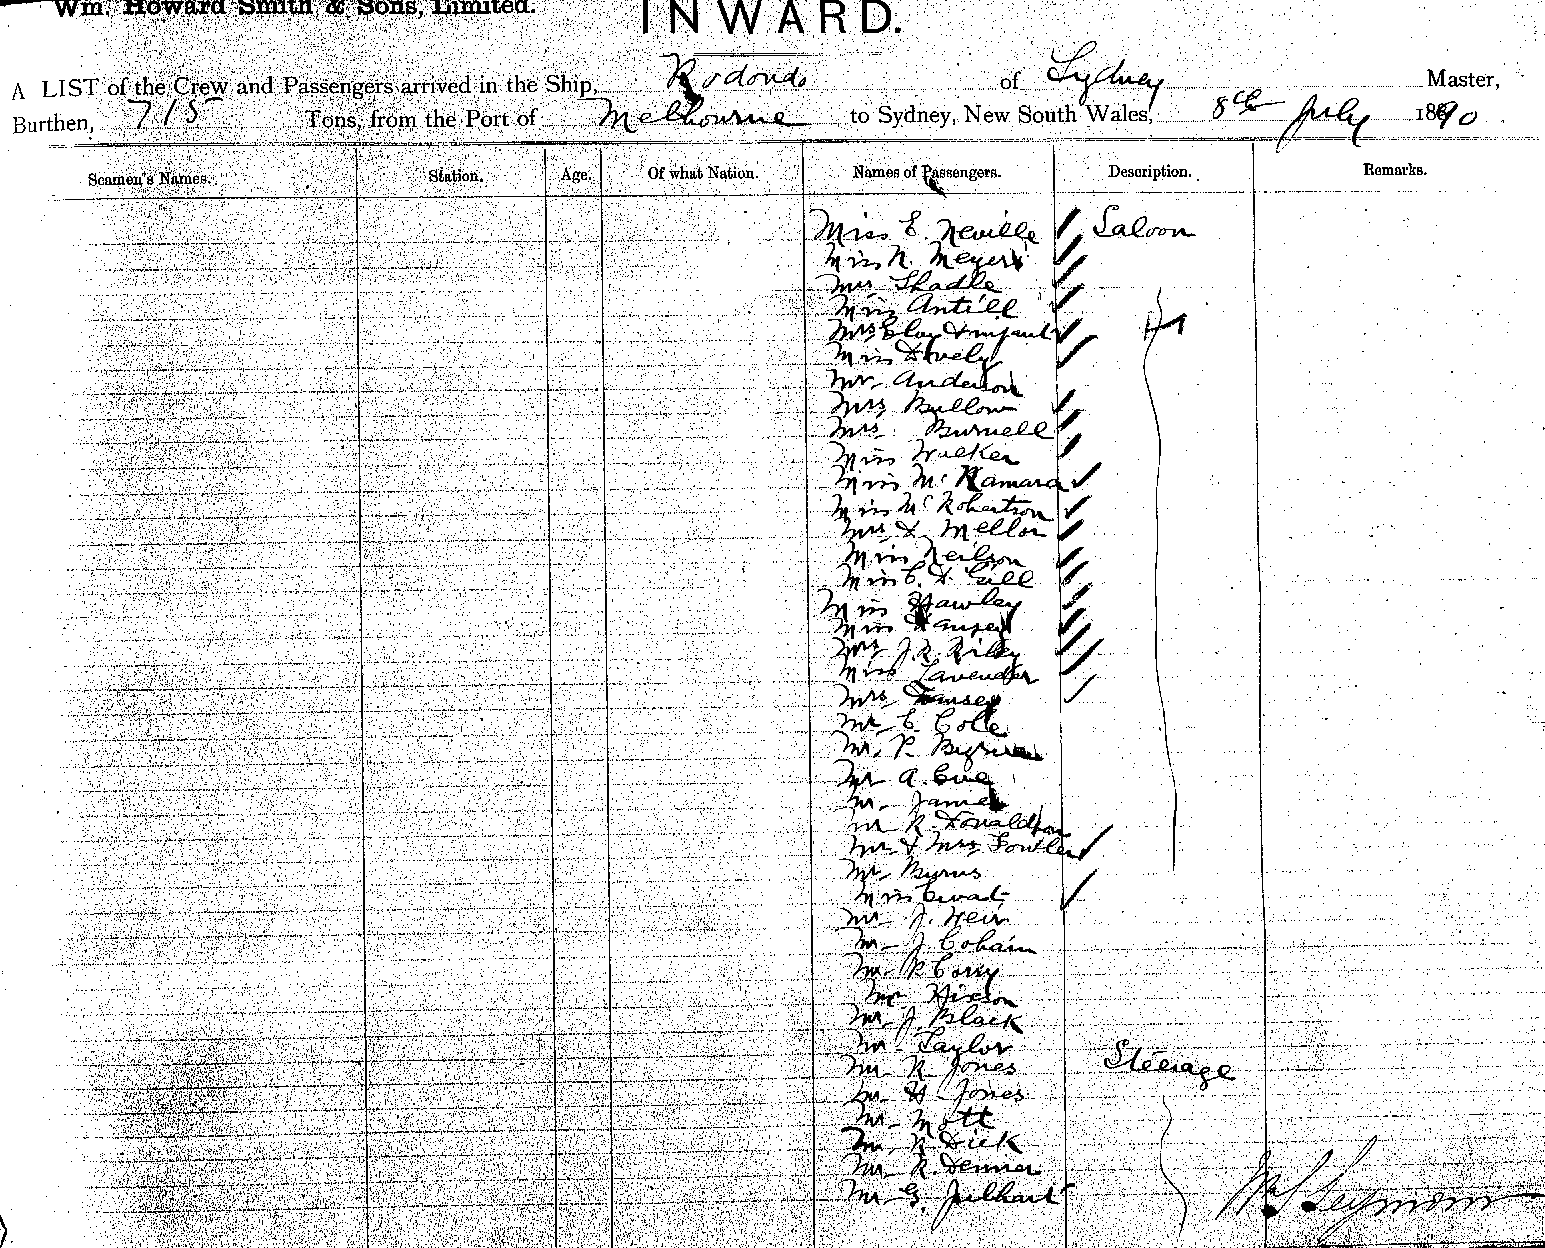 Wm. Howard Smith & Sons, Limited.
INWARD.
A LIST of the Crew and Passengers arrived in the Ship, Rodondo of Sydney Master,
Burthen, 715 Tons, from the Port of Melbourne to Sydney, New South Wales, 8th July 1890
Seamen's Names. Station. Age. Of what Nation. Names of Passengers. Description. Remarks.
Miss E. Neville Saloon
Miss N. Meyers
Mrs
Miss Antill
Mrs & infant
Miss
Mr Anderson
Mrs
Mrs Burnell
Miss Walker
Miss McNamara
Miss McRobertson
Mrs Mellor
Miss Neilson
Miss Gill
Miss Hawley
Miss
Mrs J.R. Riley
Miss Lavender
Mrs
Mr C. Cole
Mr P.
Mr A.
Mr James
Mr R. Donaldson
Mr & Mrs Fowler
Mr Burns
Miss Ewart
Mr J. Weir
Mr J. Cobain
Mr P Corry
Mr Hixson
Mr J. Black
Mr Taylor
Mr R Jones Steerage
Mr H Jones
Mr Mott
Mr R Dick
Mr R. Denner
Mr G.
Seymour